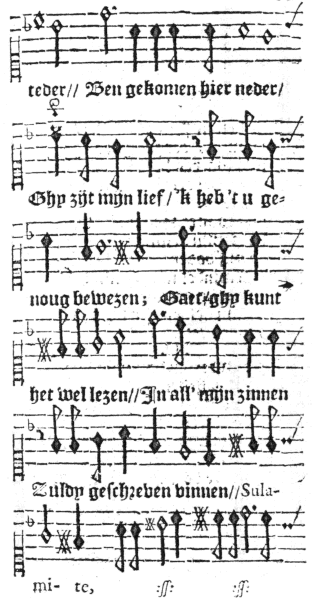 teder// Ben gekomen hier neder/
Ghy zijt mijn lief/ 'k heb 't u ge-
noug bewezen; Gaet/ghy kunt
het wel lezen//In all' mijn zinnen
Zuldy geschreven vinnen//Sula-
mi- te, :ſſ: :ſſ: